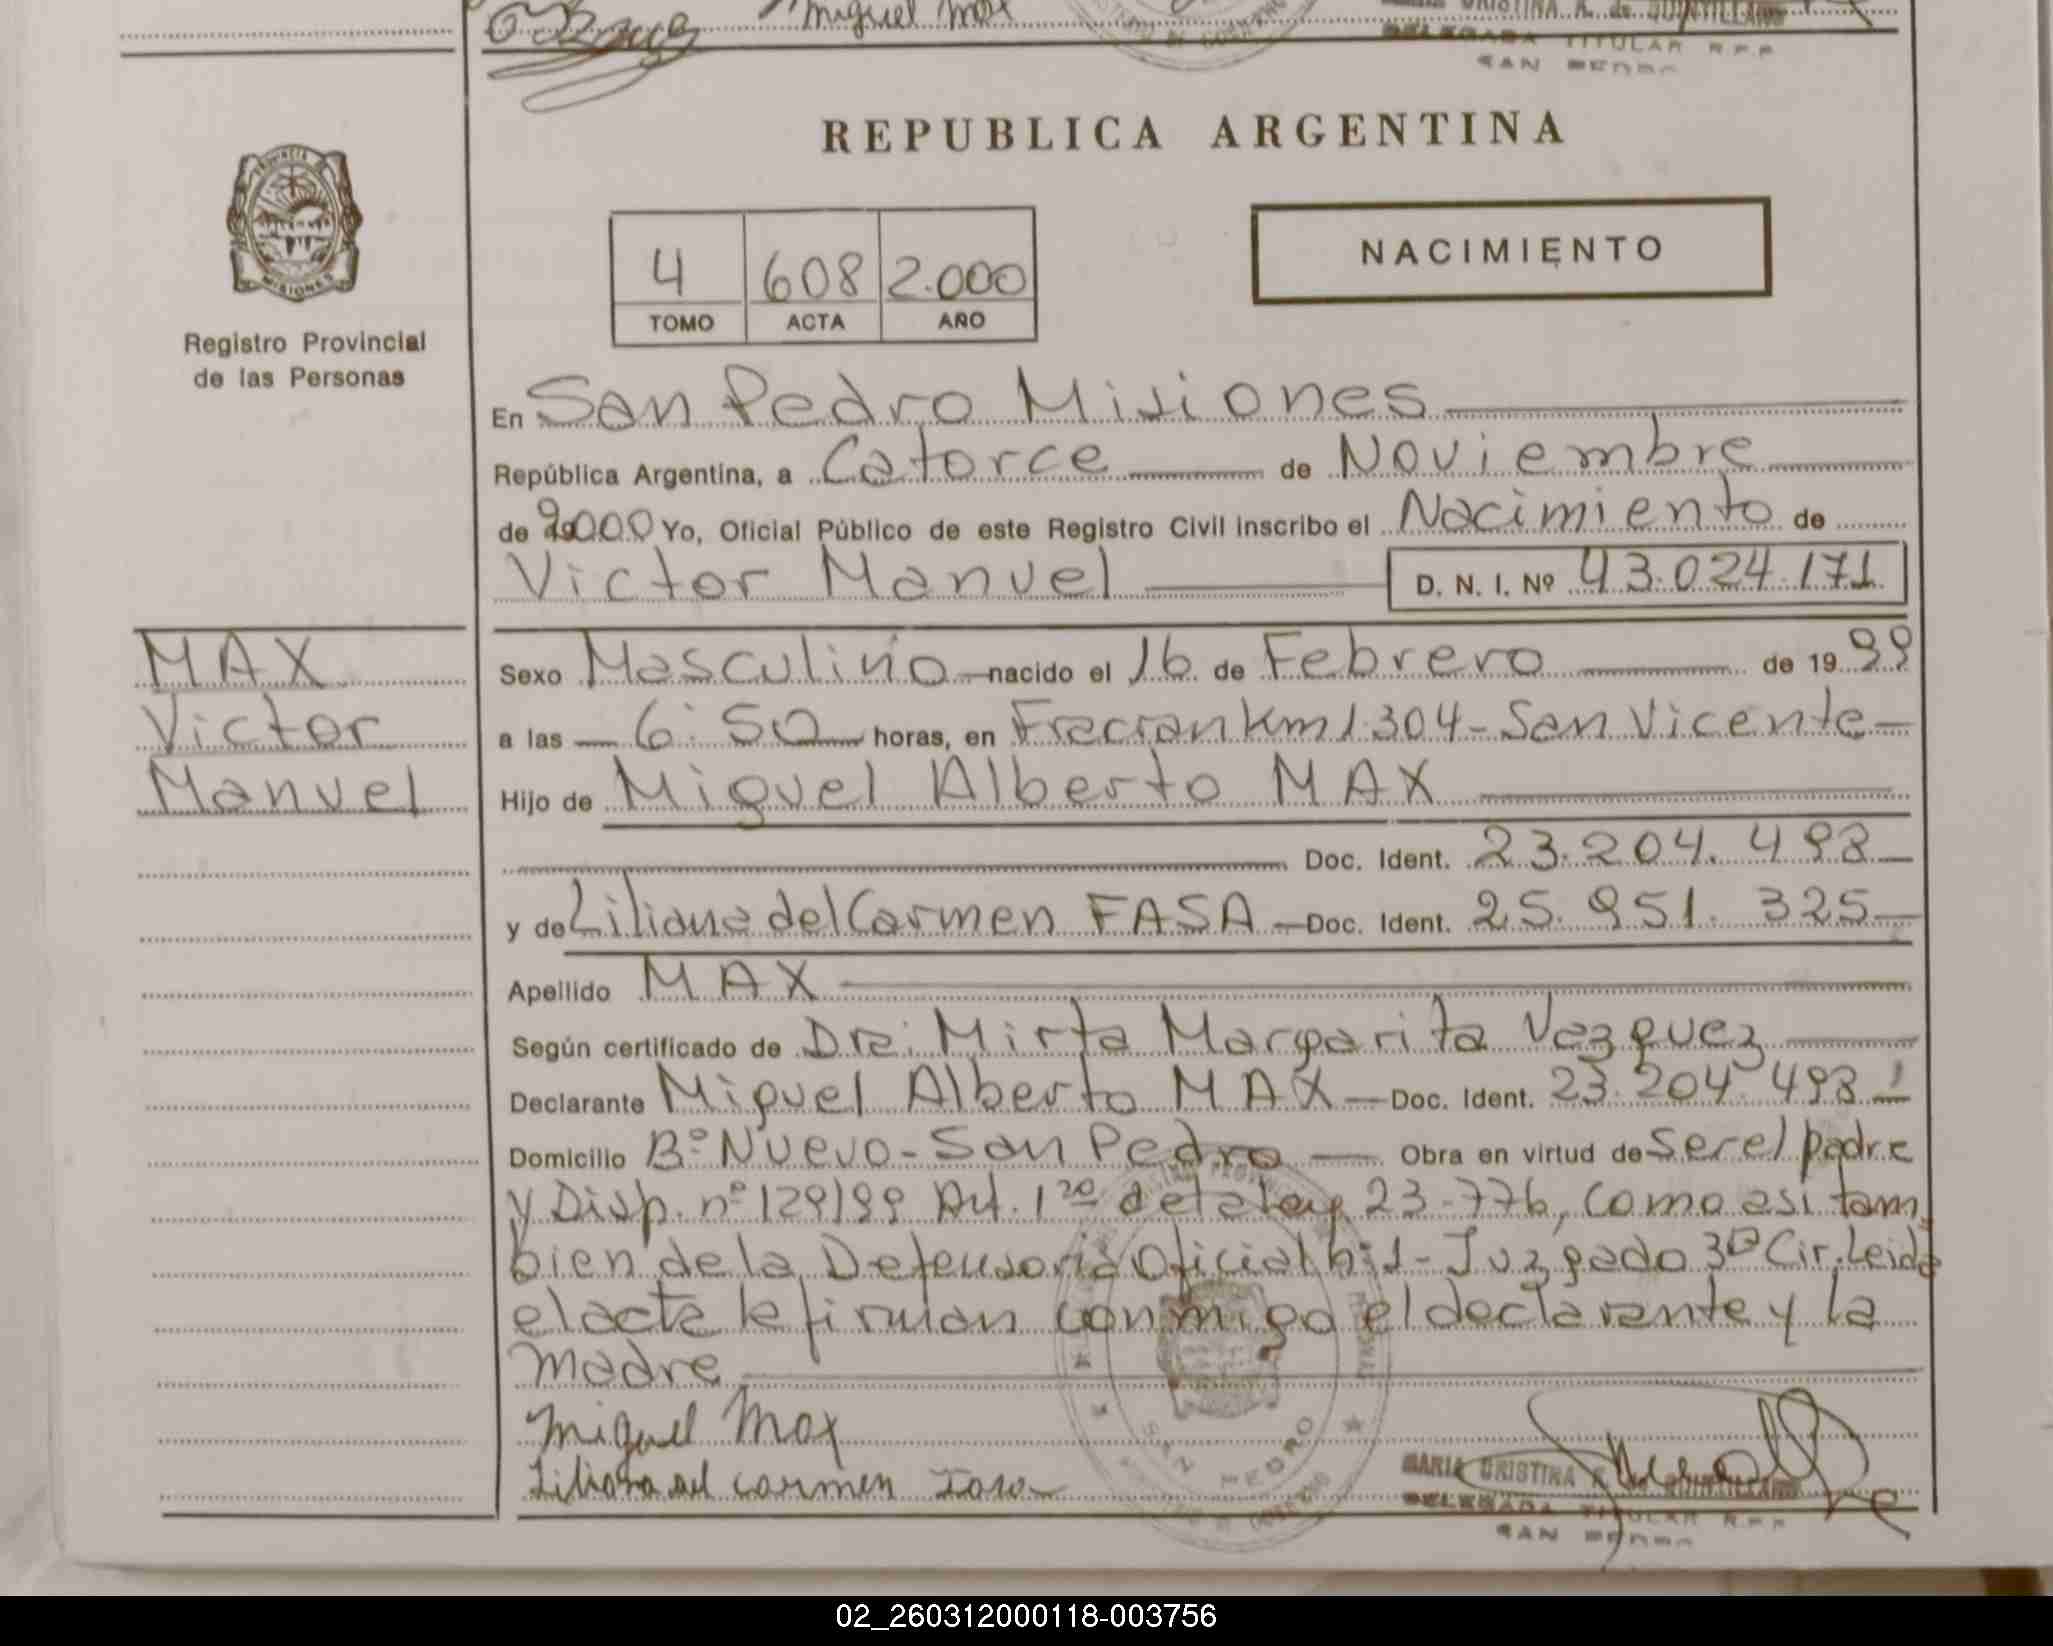 Miguel Max
DELEGADA TITULAR R.P.P.
SAN PEDRO
REPUBLICA ARGENTINA
PROVINCIA DE
MISIONES
4 608 2.000
TOMO ACTA AÑO
NACIMIENTO
Registro Provincial
de las Personas
En San Pedro Misiones
República Argentina, a Catorce de Noviembre
de 2000 Yo, Oficial Público de este Registro Civil inscribo el Nacimiento de
Victor Manuel D. N. I. Nº 43.024.171
MAX
Victor
Manuel
Sexo Masculino nacido el 16 de Febrero de 1999
a las 6:50 horas, en Fracran Km 1.304 - San Vicente
Hijo de Miguel Alberto MAX
Doc. Ident. 23.204.493
y de Liliana del Carmen FASA Doc. Ident. 25.951.325
Apellido MAX
Según certificado de Dra: Mirta Margarita Vazquez
Declarante Miguel Alberto MAX Doc. Ident. 23.204.493
Domicilio Bº Nuevo - San Pedro Obra en virtud de Ser el padre
y Disp. nº 129/99 Art. 1ro de la ley 23.776, como asi tam
bien de la Defensoria Oficial nº 1 - Juzgado 3ª Cir. Leida
el acta la firman conmigo el declarante y la
madre
Miguel Max
Liliana del Carmen Fasa
SAN PEDRO
MARIA CRISTINA R. de QUINTILLANO
DELEGADA TITULAR R.P.P.
SAN PEDRO
02_260312000118-003756